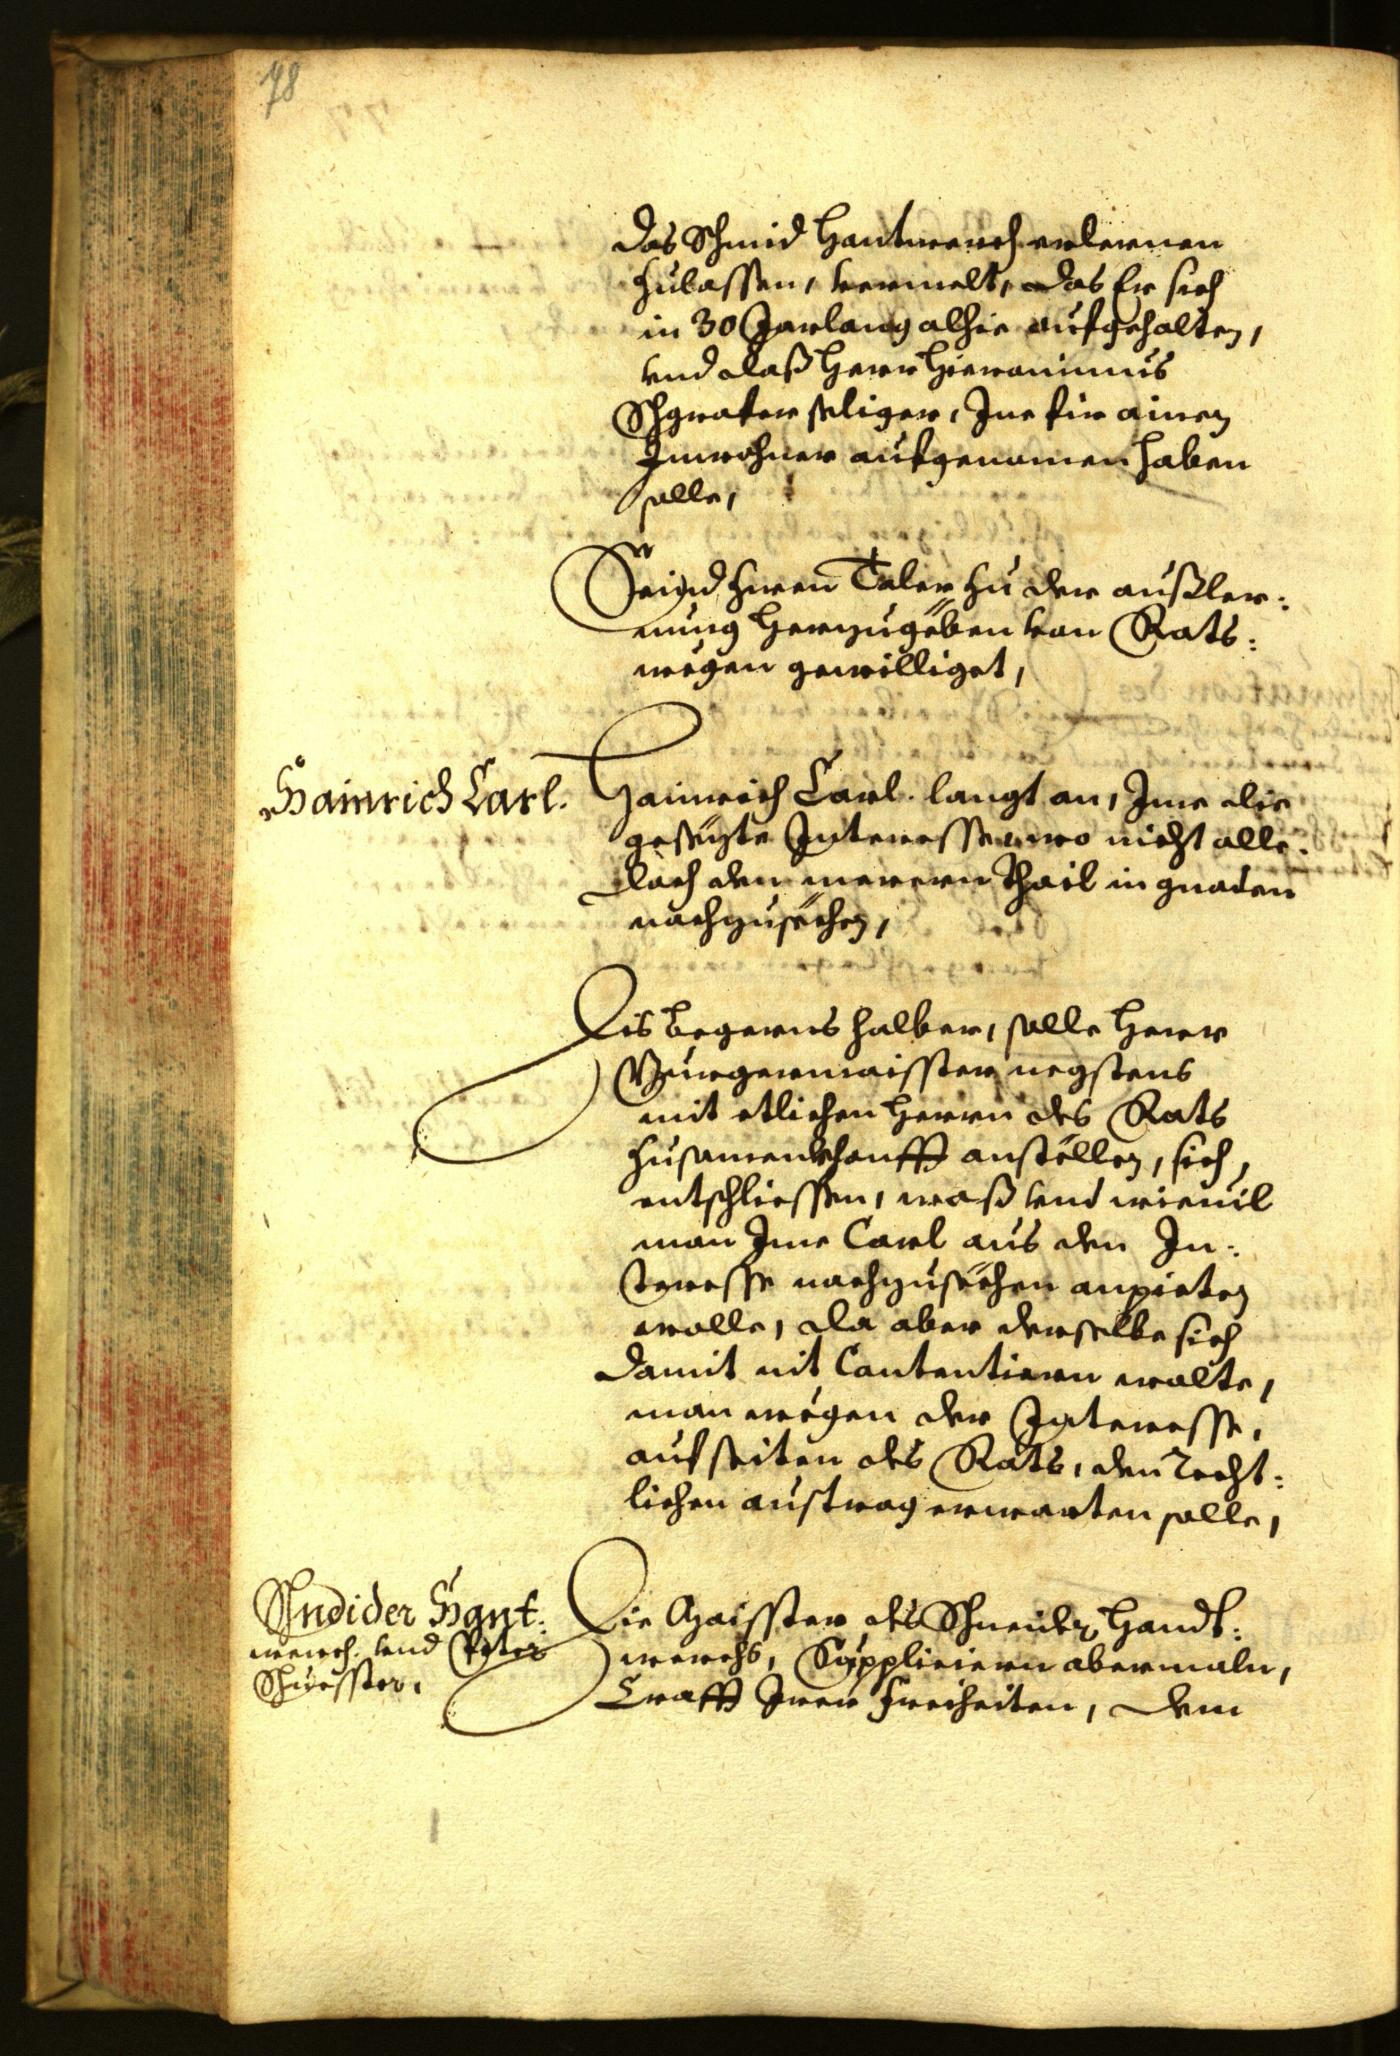 78
das Schmid Hantwerch erlernen
zulassen, vermelt, das Er sich
in 30 Jarlang alhie aufgehalten,
vnd daß Herr Hieronimus
Schgrafer seliger, Ine für ainen
Inwohner aufgenomen haben
solle,
Seind zwen Taler zu der außler:
nung herzugeben von Rats:
wegen gewilliget,
Hainrich Carl.
Hainrich Carl. langt an, Ime die
gesezte Interesse, wo nicht alle.
doch den merern Thail in gnaden
nachzusechen,
Dis begerns halber, solle Herr
Burgermaisster negstens
mit etlichen Herrn des Rats
zusamenkhonfft anstellen, sich,
entschliessen, waß vnd wieuil
man Ime Carl aus den In:
teresse nachzusechen anpieten
wolle, da aber derselbe sich
damit nit Contentiern wolte,
man wegen der Interesse,
auf seiten des Rats, den recht:
lichen austrag erwarten solle,
Schneider Hant:
werch. vnd Peter
Schuesster.
Die Maisster des Schneider Handt:
werchs, Suppliciern abermaln,
Crafft Irer Freiheiten, dem